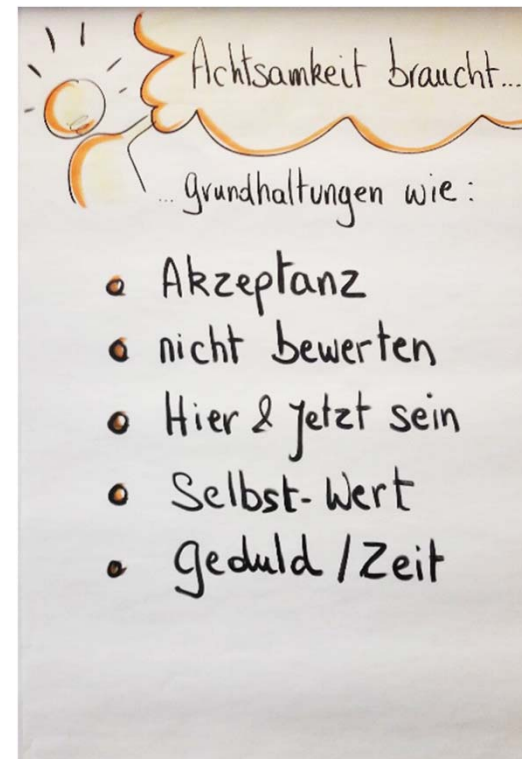 Achtsamkeit braucht...
... grundhaltungen wie:
Akzeptanz
nicht bewerten
Hier & Jetzt sein
Selbst-Wert
Geduld / Zeit